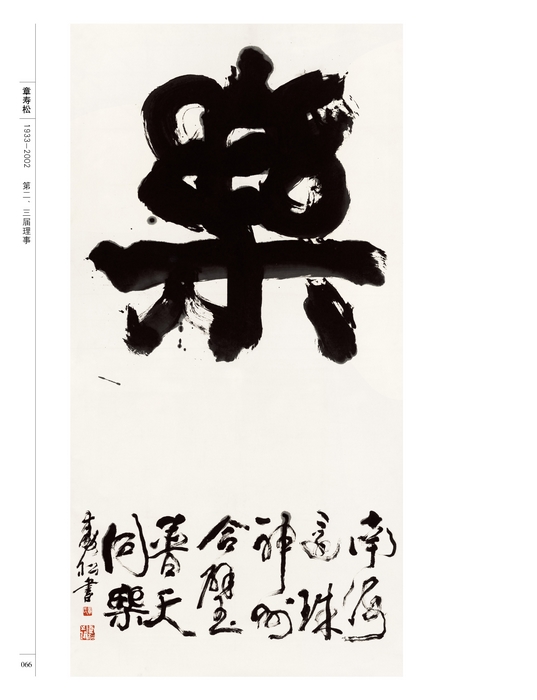 章寿松
1933—2002 第二、三届理事
樂
南海
還珠
神州
合璧
普天
同樂
壽松書
066